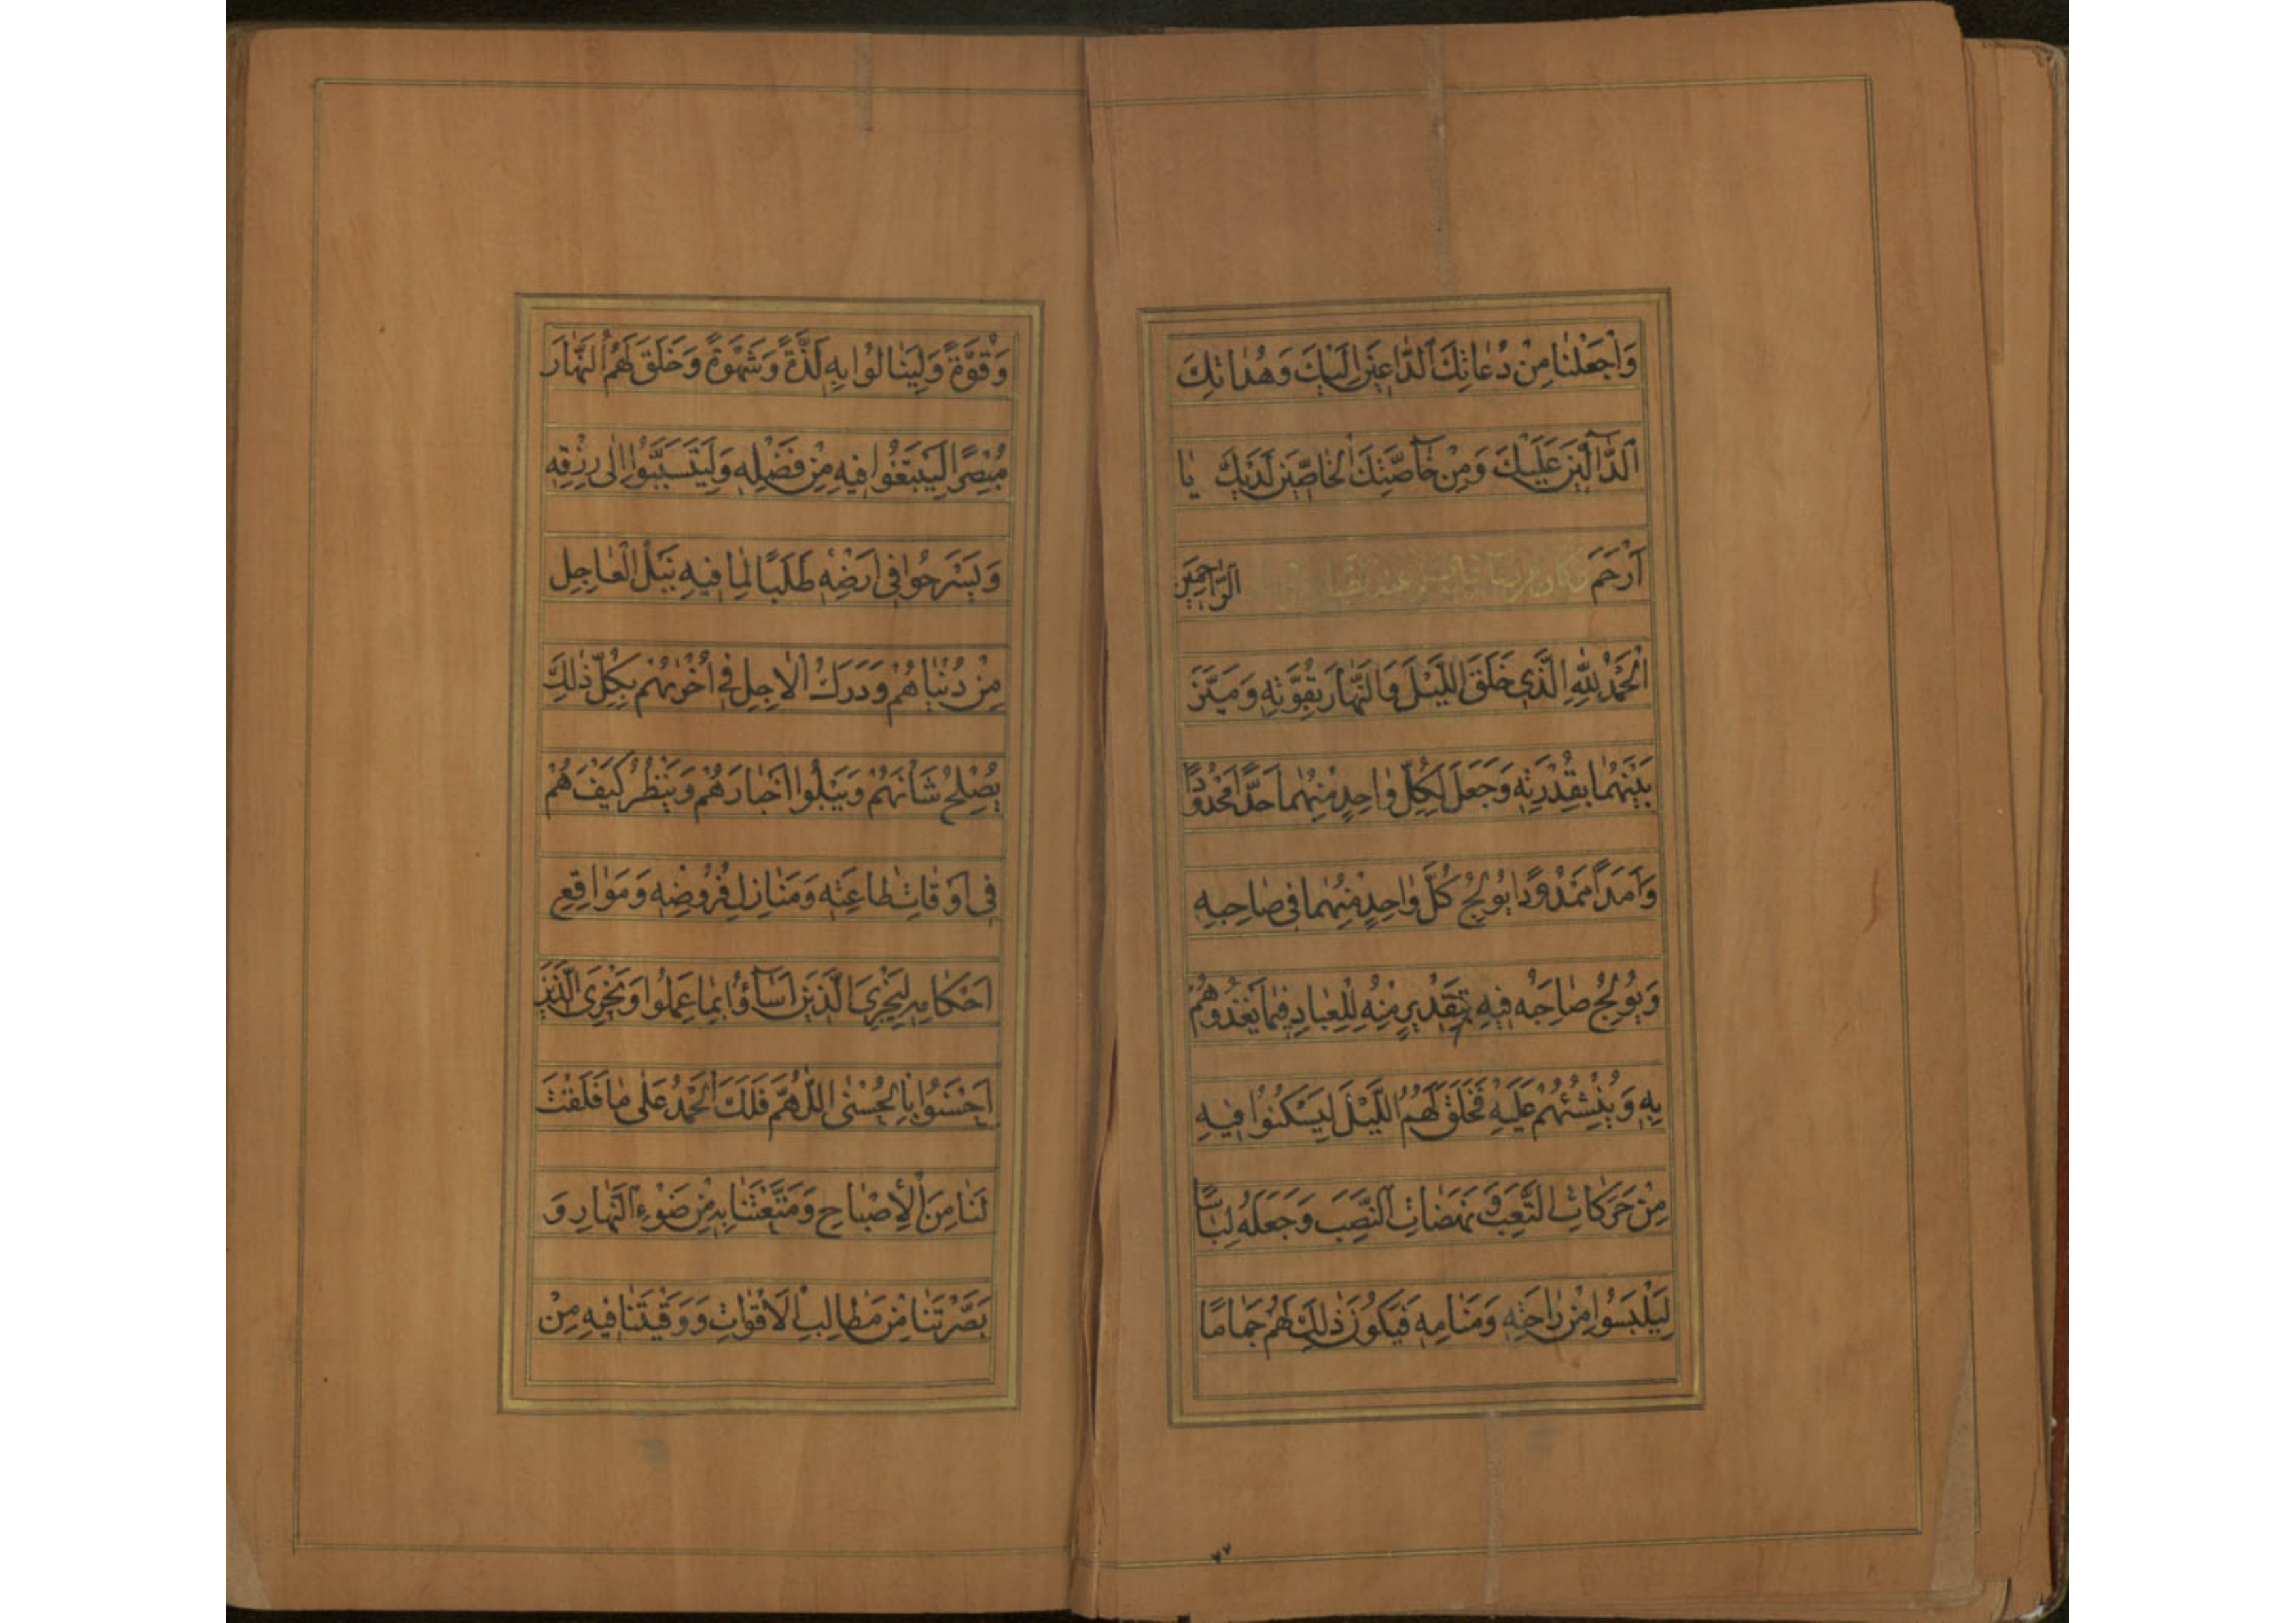 وَاجْعَلْنَا مِنْ دُعَاتِكَ الدَّاعِينَ إِلَيْكَ وَهُدَاتِكَ
الدَّالِّينَ عَلَيْكَ وَمِنْ خَاصَّتِكَ الْخَاصِّينَ لَدَيْكَ يَا
أَرْحَمَ الرَّاحِمِينَ
الْحَمْدُ لِلَّهِ الَّذِي خَلَقَ اللَّيْلَ وَالنَّهَارَ بِقُوَّتِهِ وَمَيَّزَ
بَيْنَهُمَا بِقُدْرَتِهِ وَجَعَلَ لِكُلِّ وَاحِدٍ مِنْهُمَا حَدًّا مَحْدُودًا
وَأَمَدًا مَمْدُودًا يُولِجُ كُلَّ وَاحِدٍ مِنْهُمَا فِي صَاحِبِهِ
وَيُولِجُ صَاحِبَهُ فِيهِ بِتَقْدِيرٍ مِنْهُ لِلْعِبَادِ فِيمَا يَغْذُوهُمْ
بِهِ وَيُنْشِئُهُمْ عَلَيْهِ فَخَلَقَ لَهُمُ اللَّيْلَ لِيَسْكُنُوا فِيهِ
مِنْ حَرَكَاتِ التَّعَبِ وَنَهَضَاتِ النَّصَبِ وَجَعَلَهُ لِبَاسًا
لِيَلْبَسُوا مِنْ رَاحَتِهِ وَمَنَامِهِ فَيَكُونَ ذَلِكَ لَهُمْ جَمَامًا
٧٧
وَقُوَّةً وَلِيَنَالُوا بِهِ لَذَّةً وَشَهْوَةً وَخَلَقَ لَهُمُ النَّهَارَ
مُبْصِرًا لِيَبْتَغُوا فِيهِ مِنْ فَضْلِهِ وَلِيَتَسَبَّبُوا إِلَى رِزْقِهِ
وَيَسْرَحُوا فِي أَرْضِهِ طَلَبًا لِمَا فِيهِ نَيْلُ الْعَاجِلِ
مِنْ دُنْيَاهُمْ وَدَرَكُ الْآجِلِ فِي أُخْرَيهُمْ بِكُلِّ ذَلِكَ
يُصْلِحُ شَأْنَهُمْ وَيَبْلُوا أَخْبَارَهُمْ وَيَنْظُرُ كَيْفَ هُمْ
فِي أَوْقَاتِ طَاعَتِهِ وَمَنَازِلِ فُرُوضِهِ وَمَوَاقِعِ
أَحْكَامِهِ لِيَجْزِيَ الَّذِينَ أَسَاؤُا بِمَا عَمِلُوا وَيَجْزِيَ الَّذِينَ
أَحْسَنُوا بِالْحُسْنَى اللَّهُمَّ فَلَكَ الْحَمْدُ عَلَى مَا فَلَقْتَ
لَنَا مِنَ الْإِصْبَاحِ وَمَتَّعْتَنَا بِهِ مِنْ ضَوْءِ النَّهَارِ وَ
بَصَّرْتَنَا مِنْ مَطَالِبِ الْأَقْوَاتِ وَوَقَيْتَنَا فِيهِ مِنْ